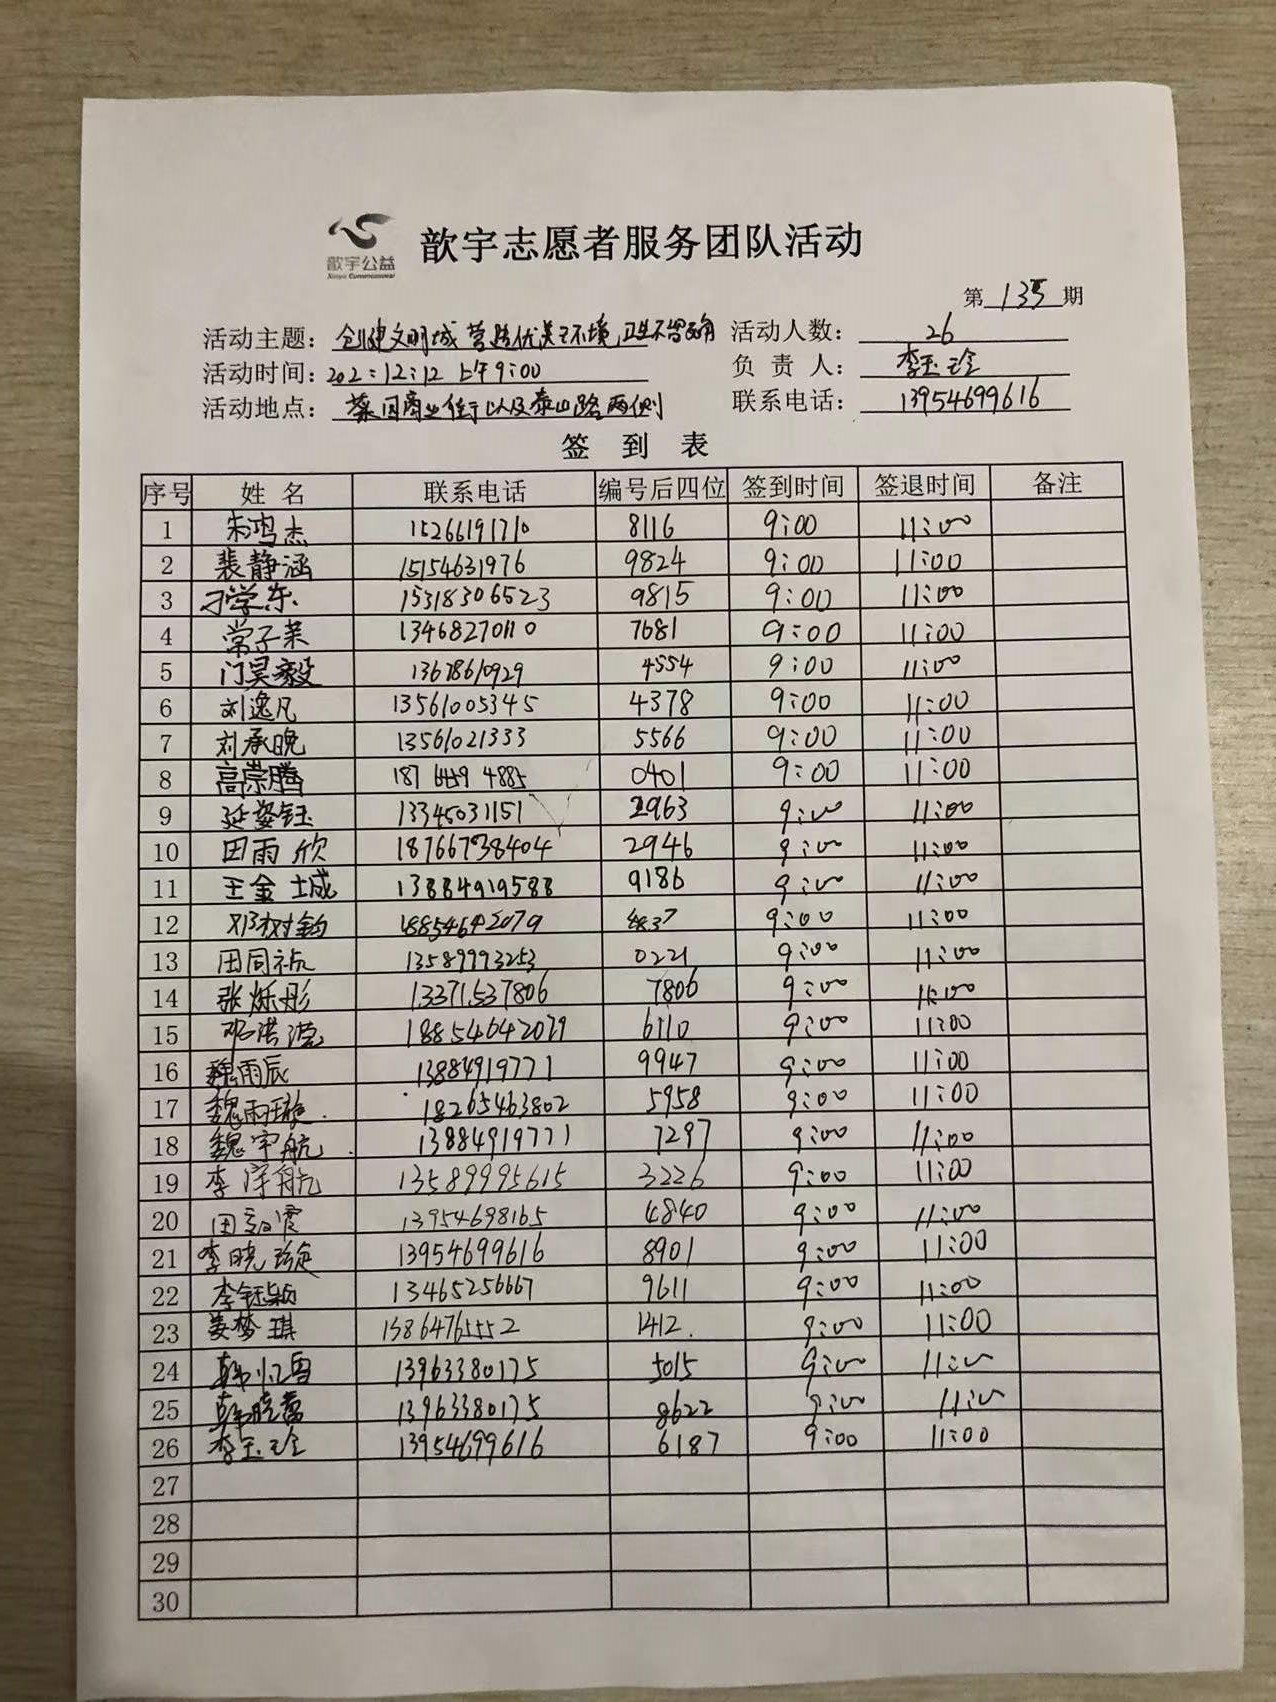 歆宇公益
歆宇志愿者服务团队活动
第 135 期
活动主题: 创建文明城 营造优美环境,卫生不留死角 活动人数: 26
活动时间: 202:12:12 上午9:00 负责人: 李玉玲
活动地点: 菜园商业街以及泰山路两侧 联系电话: 13954699616
签到表
序号 姓名 联系电话 编号后四位 签到时间 签退时间 备注
1 朱鸿杰 15266191710 8116 9:00 11:00
2 裴静涵 15154631976 9824 9:00 11:00
3 刁学东 15318306523 9815 9:00 11:00
4 常子茉 13468270110 7681 9:00 11:00
5 门昊毅 13678610929 4554 9:00 11:00
6 刘逸凡 13561005345 4378 9:00 11:00
7 刘承晚 13561021333 5566 9:00 11:00
8 高崇腾 187 6459 4885 0401 9:00 11:00
9 延姿钰 13345031151 2963 9:00 11:00
10 田雨欣 18766738404 2946 9:00 11:00
11 王金城 13884919588 9186 9:00 11:00
12 邓树钧 18854642079 9:00 11:00
13 田同航 13589993253 0221 9:00 11:00
14 张烁彤 13371537806 7806 9:00 11:00
15 邓洪 18854642079 6110 9:00 11:00
16 魏雨辰 13884919771 9947 9:00 11:00
17 魏雨璇 18265463802 5958 9:00 11:00
18 魏宇航 13884919771 7297 9:00 11:00
19 李泽航 13589995615 3226 9:00 11:00
20 田 霞 13954698165 4840 9:00 11:00
21 李晓 13954699616 8901 9:00 11:00
22 李钰颖 13465256667 9611 9:00 11:00
23 姜梦琪 13864765552 1412. 9:00 11:00
24 韩忆雪 13963380175 5015 9:00 11:00
25 韩晓蕾 13963380175 8622 9:00 11:00
26 李玉玲 13954699616 6187 9:00 11:00
27
28
29
30